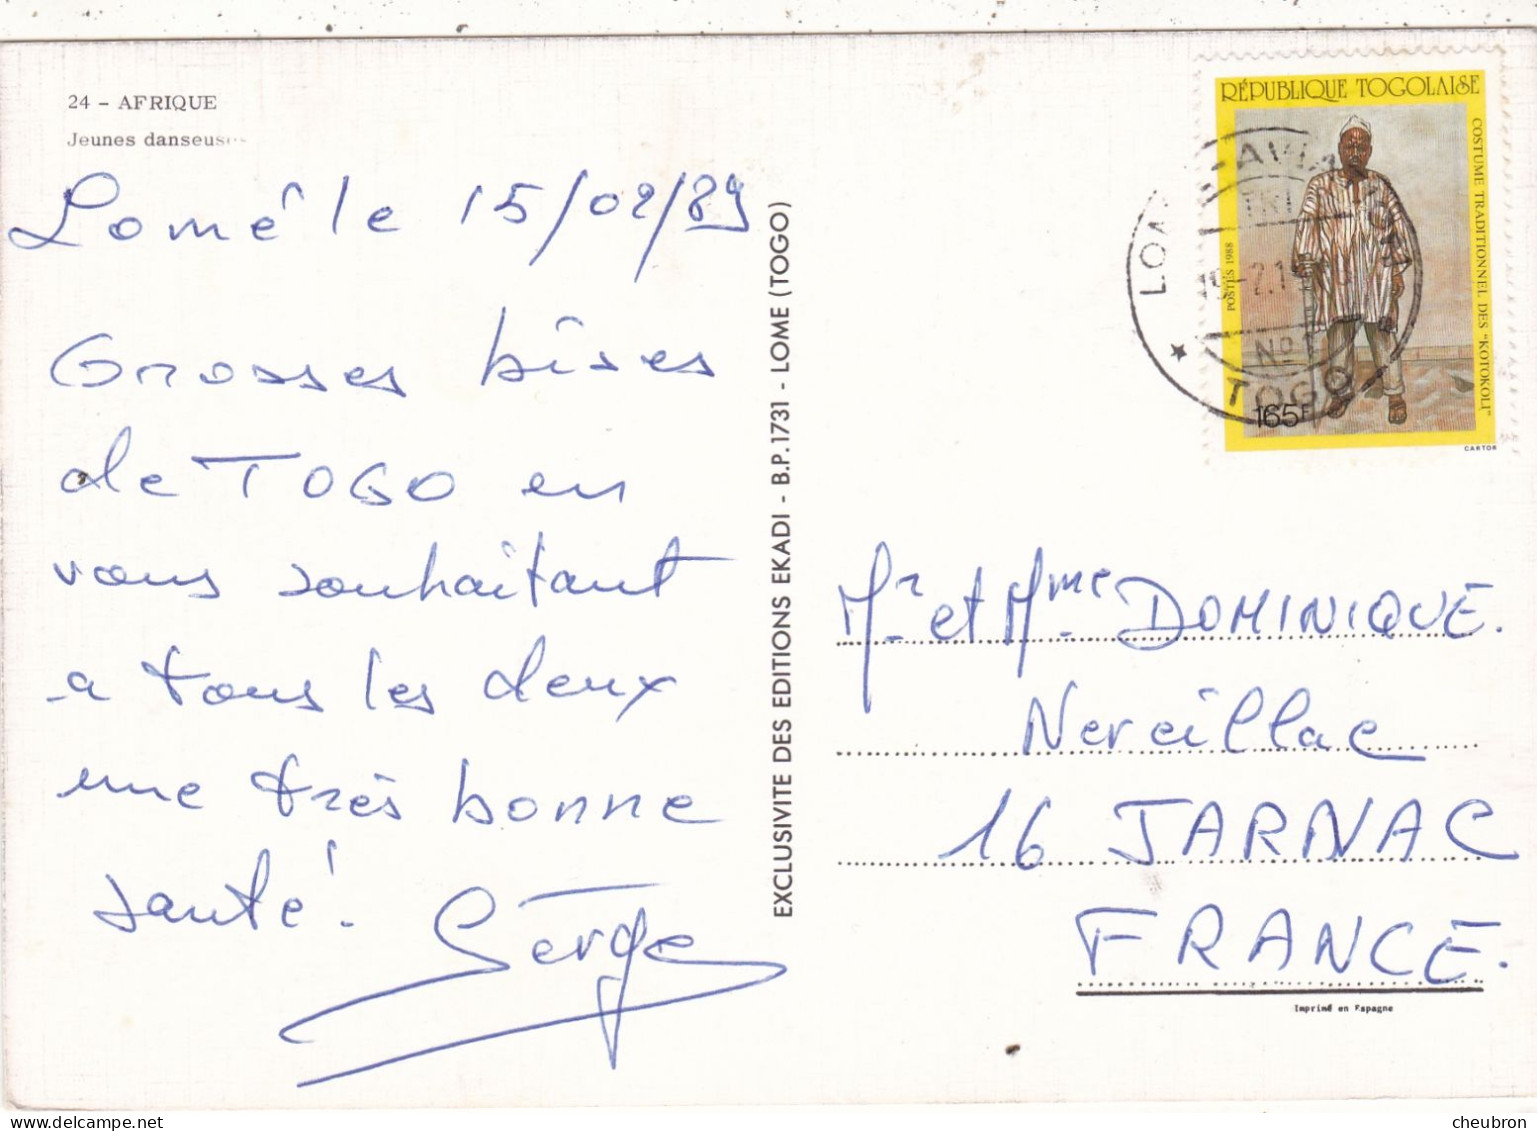 24 - AFRIQUE
Jeunes danseuses
Lomé le 15/02/89
Grosses bises
de TOGO en
vous souhaitant
a tous les deux
une très bonne
santé.
Serge
EXCLUSIVITE DES EDITIONS EKADI - B.P. 1731 - LOME (TOGO)
RÉPUBLIQUE TOGOLAISE
COSTUME TRADITIONNEL DES "KOTOKOLI"
POSTES 1988
165F
CARTOR
TRI
No 1
★ TOGO
Mr et Mme DOMINIQUE.
Nereillac
16 JARNAC
FRANCE.
Imprimé en Espagne
cheubron_com